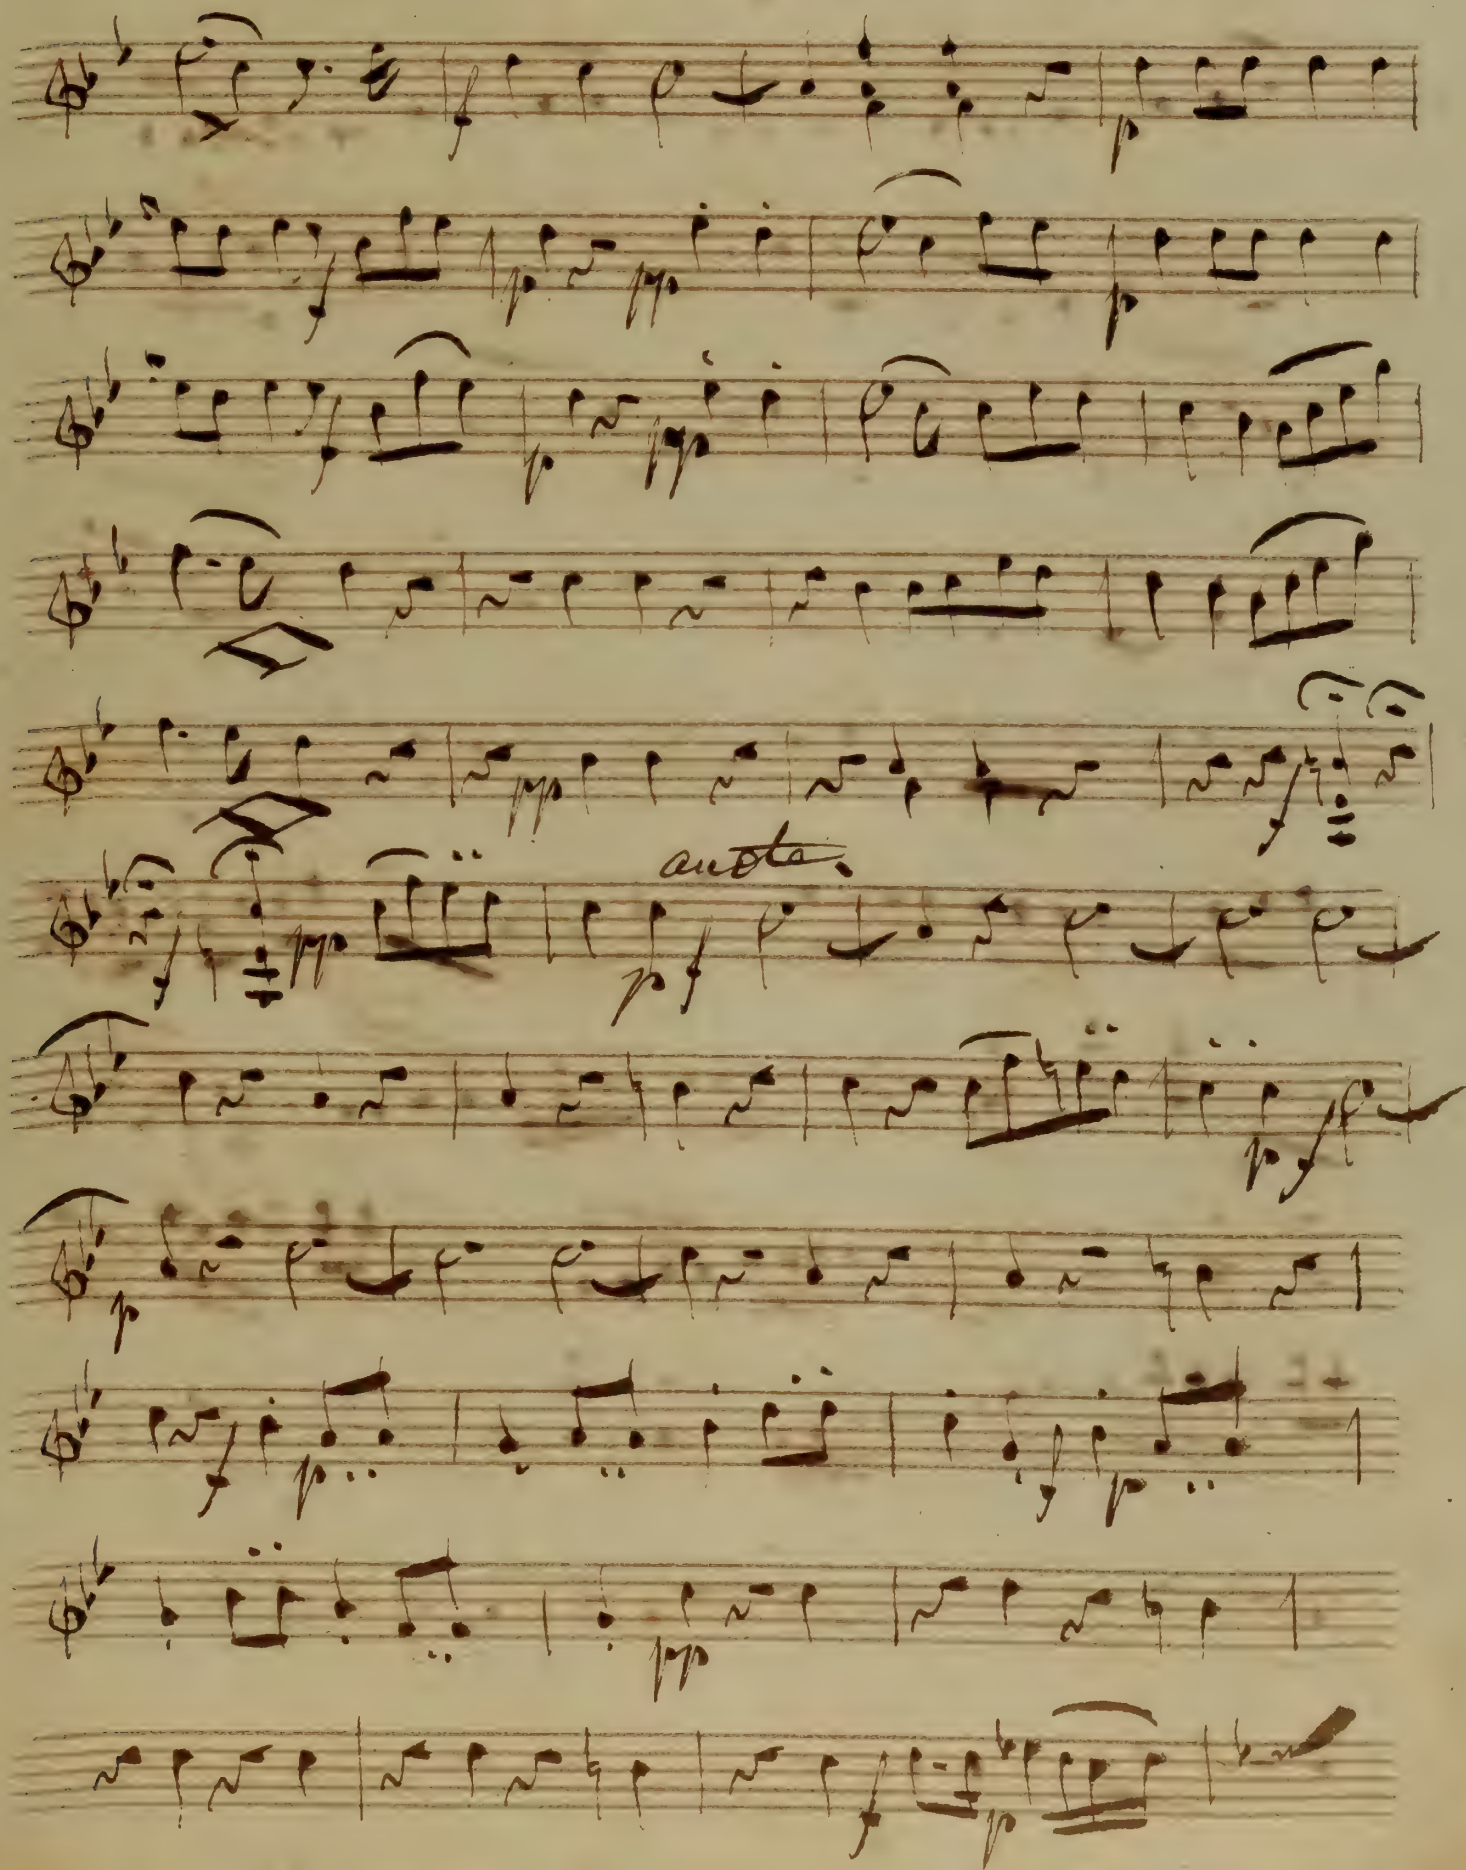 f p
f p pp p
f p pp
pp f
andte.
f pp p f
p f
p
f p f p
pp
f p